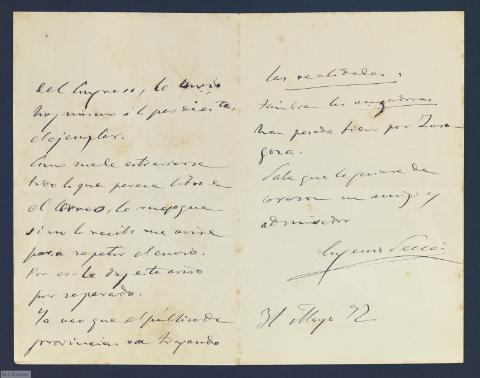 del Congreso, le envio
hoy mismo á
el ejemplar.
Como suele extraviarse
todo lo que parece libro en
el correo, le ruego que
si no lo recibe me avise
para repetir el envio.
Por eso le doy este aviso
por separado.
Ya veo que el público de
provincias va tragando
las realidades.
Tambien las vengadoras
han pasado bien por Zara-
goza.
Sabe que le quiere de
corazon su amigo y
admirador
Eugenio Sellés
31 Mayo 92